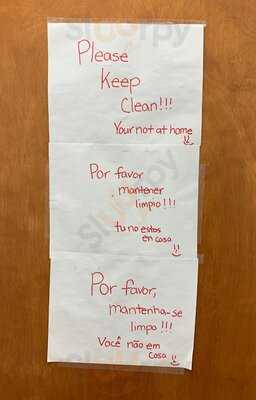 Please
Keep
Clean!!!
Your not at home
Por favor
mantener
limpio!!!
tu no estas
en casa
Por favor,
mantenha-se
limpo!!!
Você não em
casa
Sluurpy
Sluurpy
Sluurpy